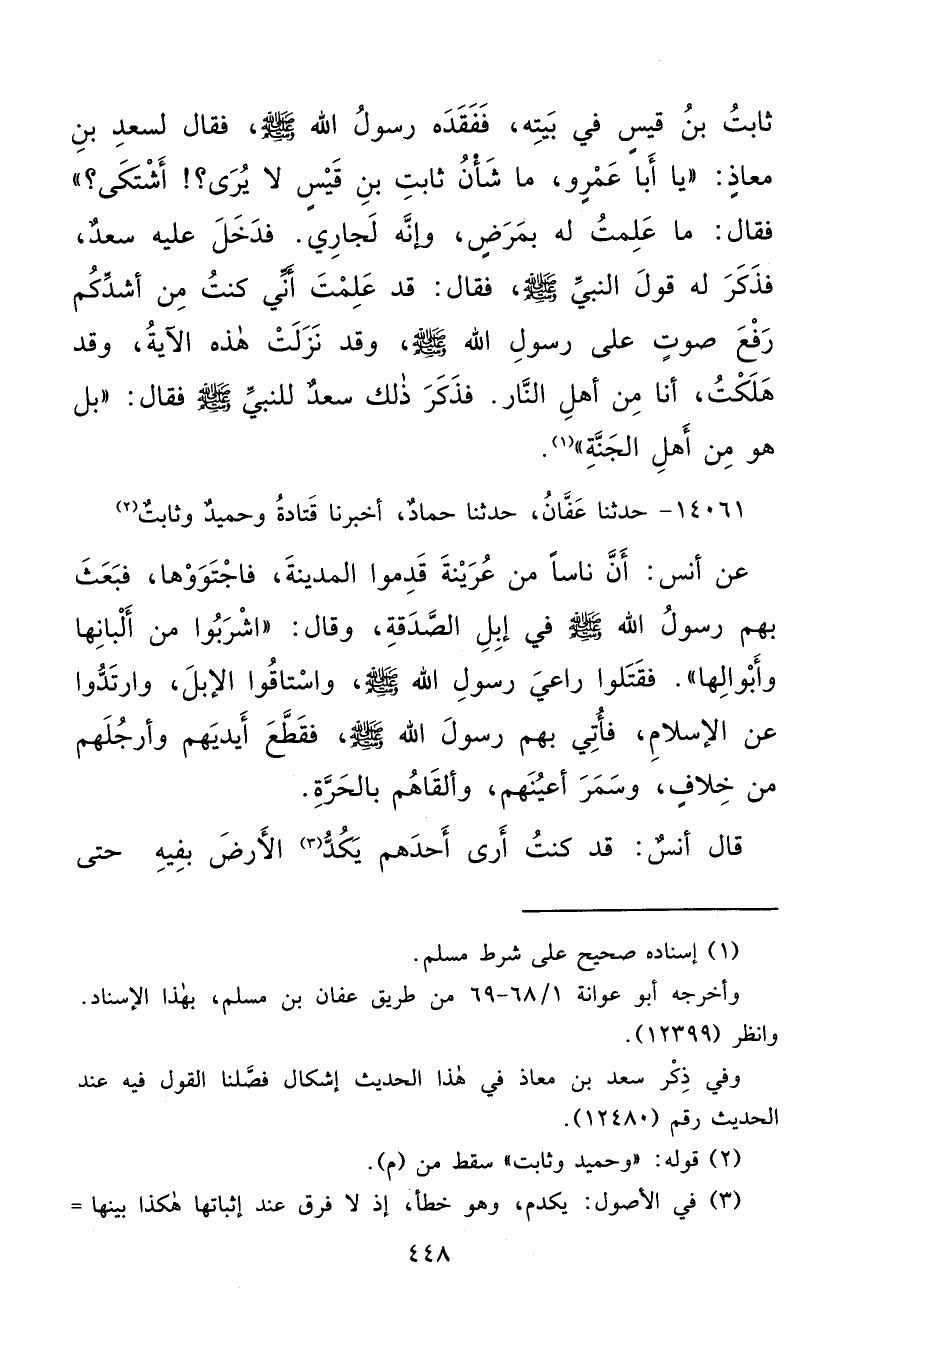 ثابتُ بنُ قيسٍ في بَيتِه، فَفَقَدَه رسولُ الله ﷺ، فقال لسعدِ بنِ
معاذٍ: «يا أَبا عَمْرٍو، ما شَأْنُ ثابتِ بنِ قَيْسٍ لا يُرَى؟! أَشْتَكَى؟»
فقال: ما عَلِمتُ له بمَرَضٍ، وإنَّه لَجارِي. فدَخَلَ عليه سعدٌ،
فذَكَرَ له قولَ النبيِّ ﷺ، فقال: قد عَلِمْتَ أَنِّي كنتُ مِن أشدِّكُم
رَفْعَ صوتٍ على رسولِ الله ﷺ، وقد نَزَلَتْ هٰذه الآيةُ، وقد
هَلَكْتُ، أنا مِن أهلِ النَّار. فذَكَرَ ذٰلك سعدٌ للنبيِّ ﷺ فقال: «بل
هو مِن أَهلِ الجَنَّةِ»(١).
١٤٠٦١- حدثنا عَفَّانُ، حدثنا حمادٌ، أخبرنا قَتادةُ وحميدٌ وثابتٌ(٢)
عن أنس: أَنَّ ناساً من عُرَيْنةَ قَدِموا المدينةَ، فاجْتَوَوْها، فبَعَثَ
بهم رسولُ الله ﷺ في إبِلِ الصَّدَقةِ، وقال: «اشْرَبُوا من أَلْبانِها
وأَبْوالِها». فقَتَلوا راعيَ رسولِ الله ﷺ، واسْتاقُوا الإبلَ، وارتَدُّوا
عن الإسلامِ، فأُتِي بهم رسولَ الله ﷺ، فقَطَّعَ أَيديَهم وأرجُلَهم
من خِلافٍ، وسَمَرَ أعيُنَهم، وألقَاهُم بالحَرَّةِ.
قال أنسٌ: قد كنتُ أَرى أَحدَهم يَكُدُّ(٣) الأَرضَ بفِيهِ حتى
(١) إسناده صحيح على شرط مسلم.
وأخرجه أبو عوانة ١/ ٦٨-٦٩ من طريق عفان بن مسلم، بهٰذا الإسناد.
وانظر (١٢٣٩٩).
وفي ذِكْر سعد بن معاذ في هٰذا الحديث إشكال فصَّلنا القول فيه عند
الحديث رقم (١٢٤٨٠).
(٢) قوله: «وحميد وثابت» سقط من (م).
(٣) في الأصول: يكدم، وهو خطأ، إذ لا فرق عند إثباتها هٰكذا بينها =
٤٤٨